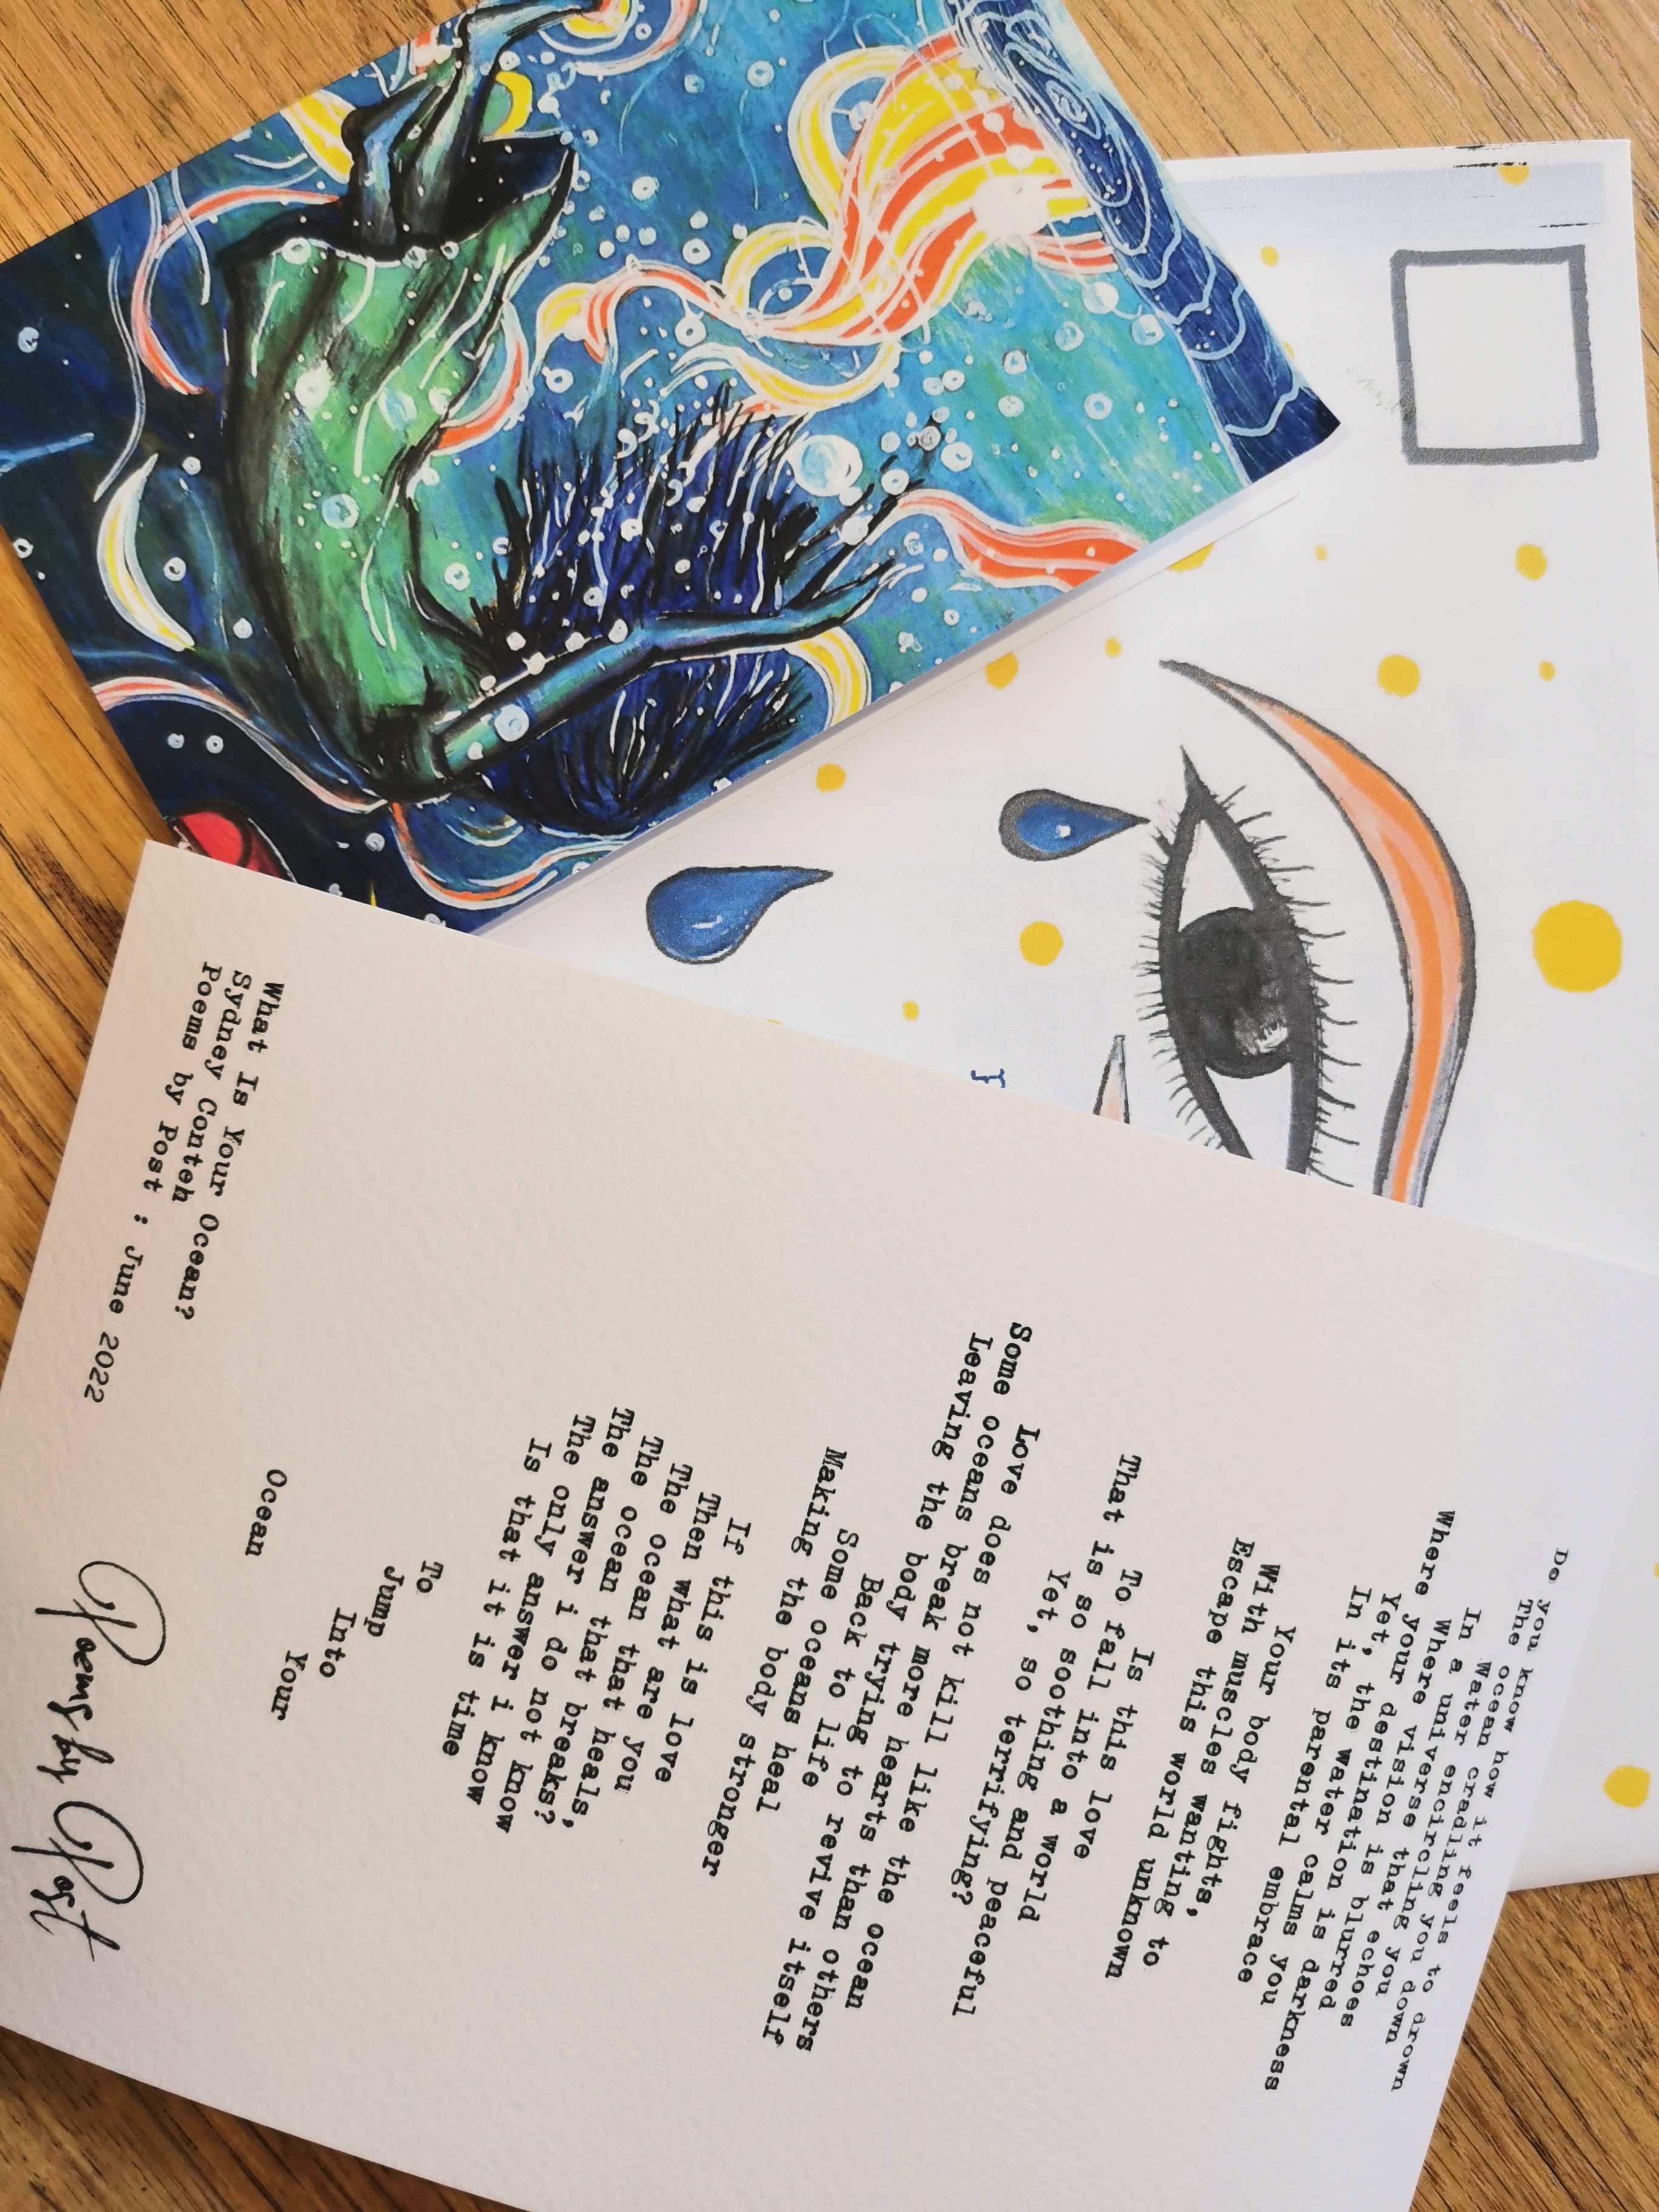 Do you know how it feels to drown
The ocean cradling you down
In a water encircling you
Where a universe that echoes
Where your vision is blurred
Yet, your destination is darkness
In its parental embrace
Yet, the water calms you
Your body fights,
With muscles wanting to
Escape this world unknown
Is this love
To fall into a world
That is so soothing and peaceful
Yet, so terrifying?
Love does not kill like the ocean
Some oceans break more hearts than others
Leaving the body trying to revive itself
Back to life
Some oceans heal
Making the body stronger
If this is love
Then what are you
The ocean that heals,
The ocean that breaks?
The answer i do not know
The only answer i know
Is that it is time
To
Jump
Into
Your
Ocean
What Is Your Ocean?
Sydney Conteh
Poems by Post : June 2022
Poems by Post